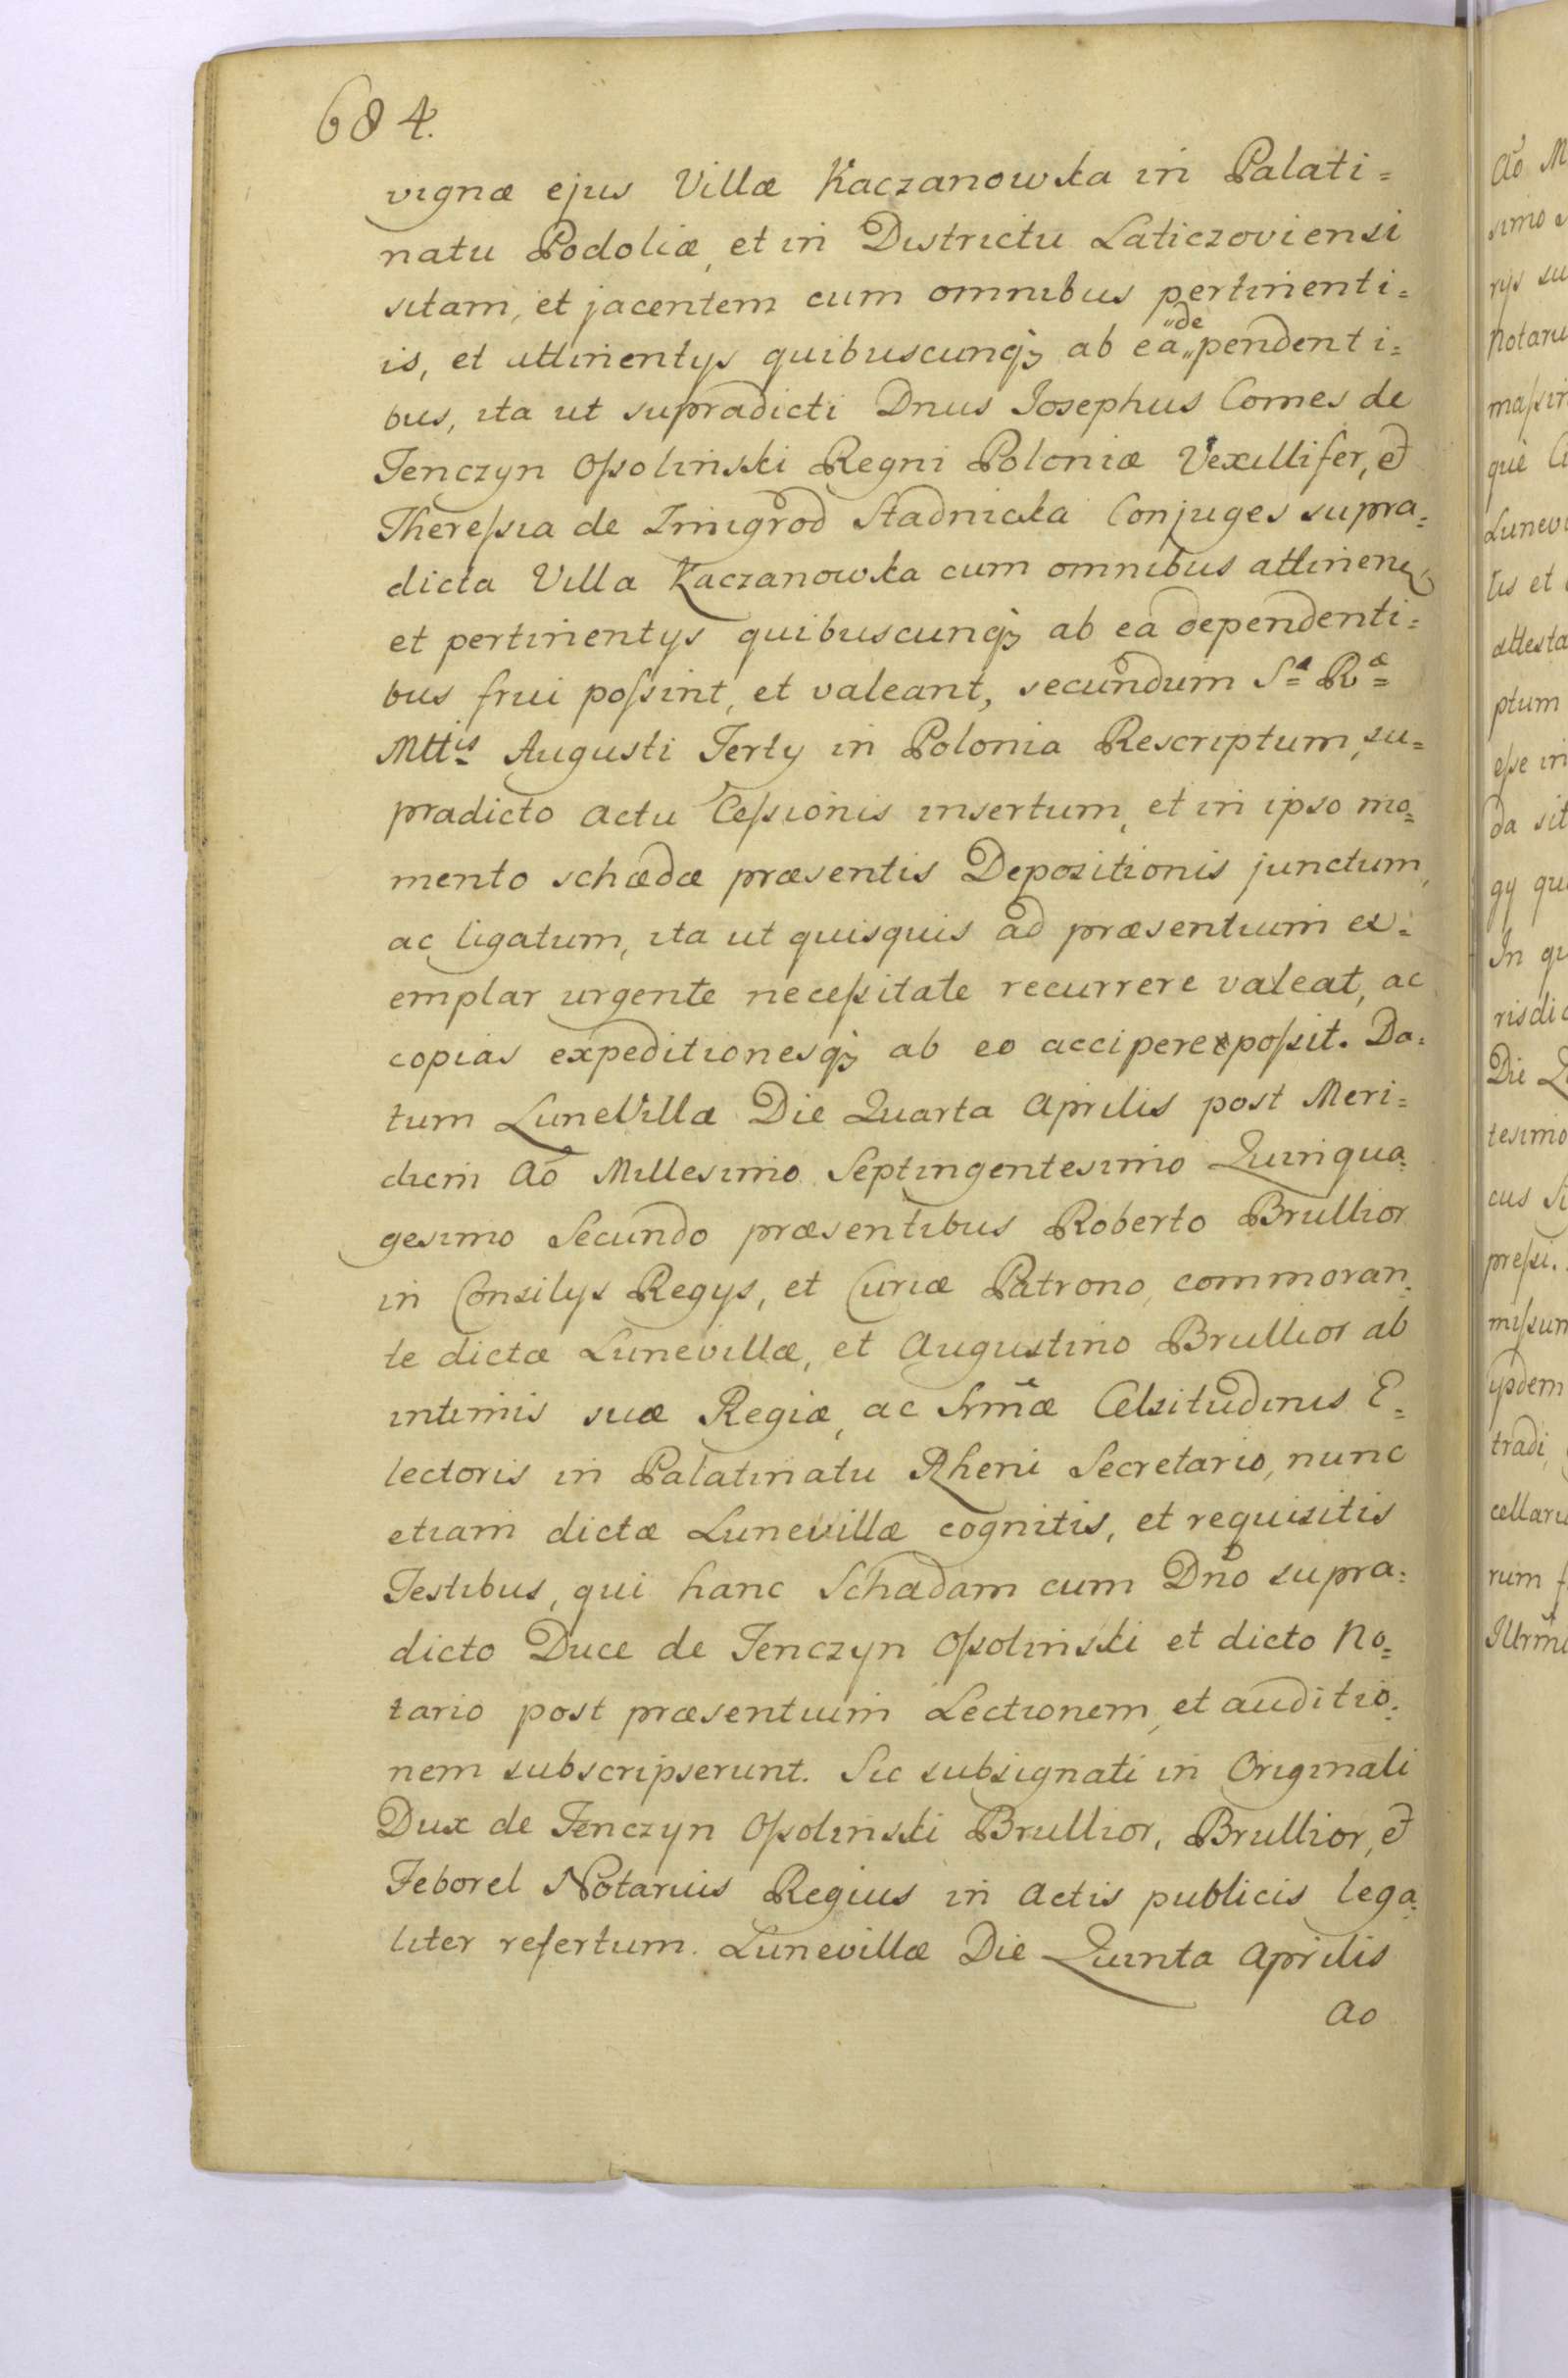 684.
vignæ ejus Villæ Kaczanowska in Palati=
natu Podoliæ, et in Districtu Laticzoviensi
sitam, et jacentem cum omnibus pertinenti=
is, et attinentys quibuscunqȝ ab ea „de„ pendenti=
bus, ita ut supradicti Dnus Josephus Comes de
Tenczyn Oſsolinski Regni Poloniæ Vexillifer, et
Thereſsia de Zmigrod Stadnicka Conjuges supra=
dicta Villa Kaczanowska cum omnibus attinen
et pertinentys quibuscunqȝ ab ea dependenti=
bus frui poſsint, et valeant, secundum Sæ Ræ
Mttis Augusti Terty in Polonia Rescriptum, su=
pradicto actu Ceſsionis insertum, et in ipso mo=
mento schædæ præsentis Depositionis junctum,
ac ligatum, ita ut quisquis ad præsentium ex=
emplar urgente neceſsitate recurrere valeat, ac
copias expeditionesqȝ ab eo accipere poſsit. Da=
tum LuneVillæ Die Quarta Aprilis post Meri=
diem Aō Millesimo Septingentesimo Quinqua=
gesimo Secundo præsentibus Roberto Brullior
in Consilys Regys, et Curiæ Patrono, commoran=
te dictæ Lunevillæ, et Augustino Brullior ab
intimis suæ Regiæ, ac Srm̄æ Celsitudinis E=
lectoris in Palatinatu Rheni Secretario, nunc
etiam dictæ Lunevillæ cognitis, et requisitis
Testibus, qui hanc Schædam cum Dn̄o supra=
dicto Duce de Tenczyn Oſsolinski et dicto No=
tario post præsentium Lectionem, et auditio=
nem subscripserunt. Sic subsignati in Originali
Dux de Tenczyn Oſsolinski Brullior, Brullior, et
Feborel Notarius Regius in Actis publicis lega=
liter refertum. Lunevillæ Die Quinta Aprilis
Ao